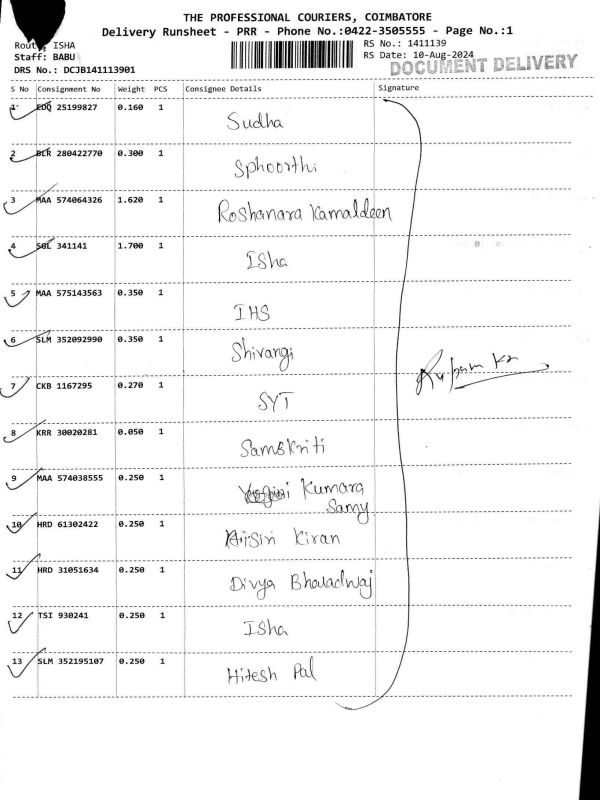 THE PROFESSIONAL COURIERS, COIMBATORE
Delivery Runsheet - PRR - Phone No.:0422-3505555 - Page No.:1
ISHA RS No.: 1411139
Staff: BABU RS Date: 10-Aug-2024
DOCUMENT DELIVERY
DRS No.: DCJB141113901
S No Consignment No Weight PCS Consignee Details Signature
1 EDQ 25199827 0.160 1
Sudha
2 BLR 280422770 0.300 1
Sphoorthi
3 MAA 574064326 1.620 1
Roshanara Kamaldeen
4 SGL 341141 1.700 1
Isha
5 MAA 575143563 0.350 1
IHS
6 SLM 352092990 0.350 1
Shivangi
7 CKB 1167295 0.270 1
SYT
8 KRR 30020281 0.050 1
Samskriti
9 MAA 574038555 0.250 1
Kumara
Samy
10 HRD 61302422 0.250 1
Kiran
11 HRD 31051634 0.250 1
Divya Bharadwaj
12 TSI 930241 0.250 1
Isha
13 SLM 352195107 0.250 1
Hitesh Pal